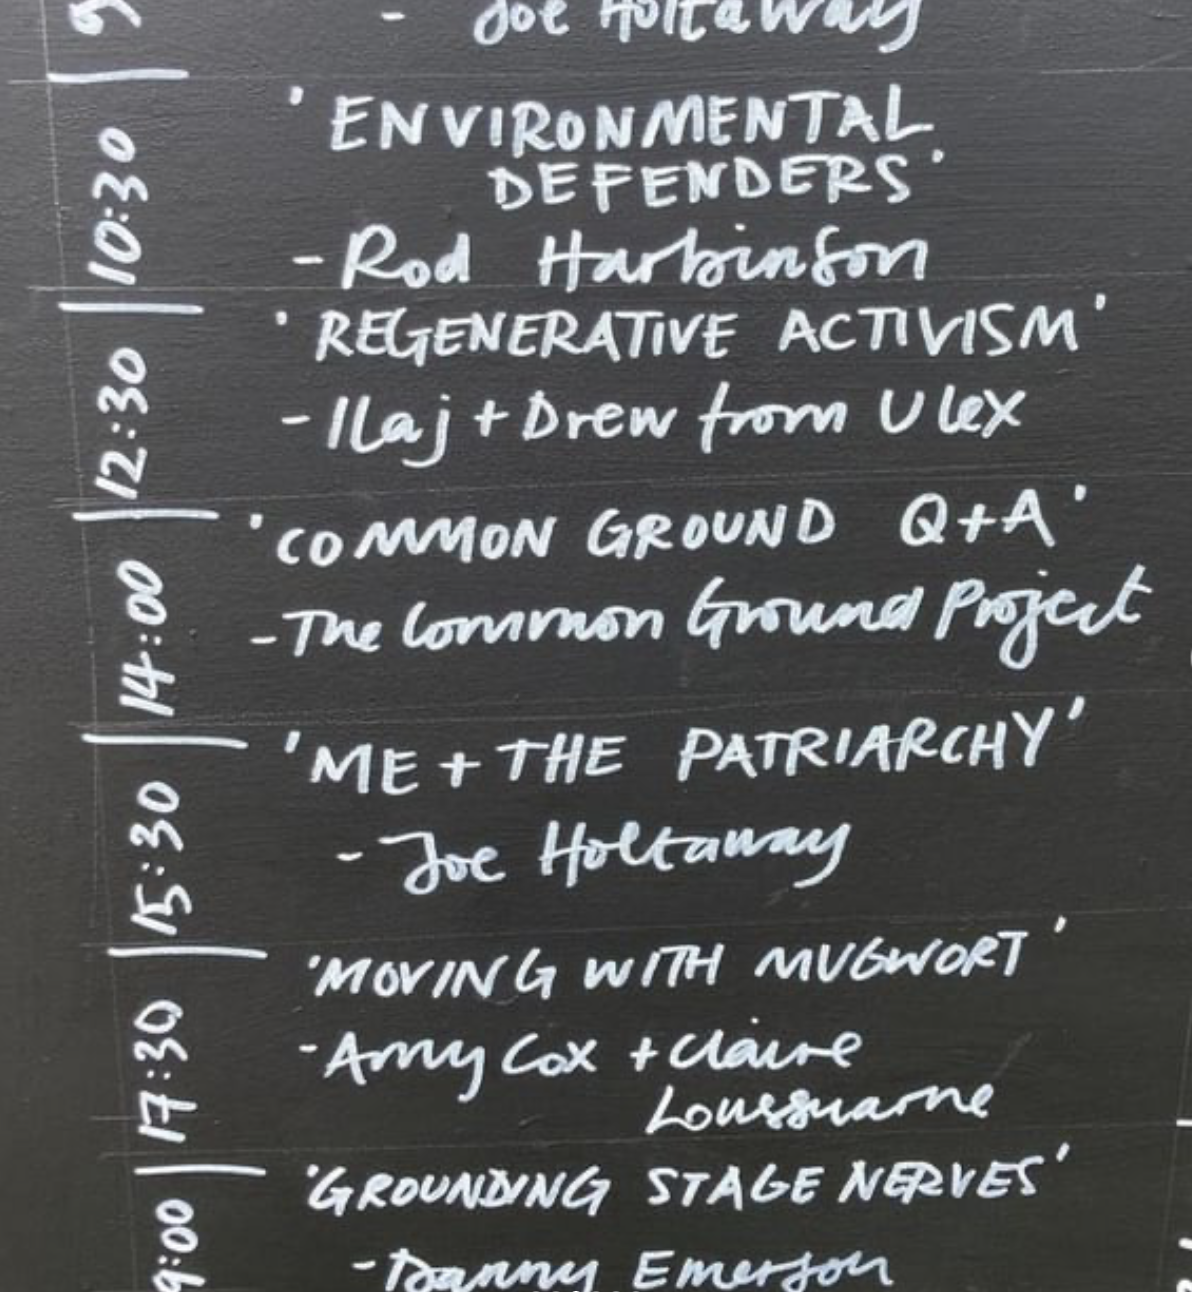 - Joe Holtaway
10:30
'ENVIRONMENTAL
DEFENDERS'
- Rod Harbinson
12:30
'REGENERATIVE ACTIVISM'
- Ilaj + Drew from Ulex
14:00
'COMMON GROUND Q+A'
- The Common Ground Project
15:30
'ME + THE PATRIARCHY'
- Joe Holtaway
17:30
'MOVING WITH MUGWORT'
- Amy Cox + Claire
Loussouarne
9:00
'GROUNDING STAGE NERVES'
- Danny Emerson